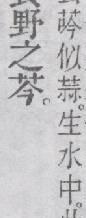 荶似蒜。生水中。
野之芩。